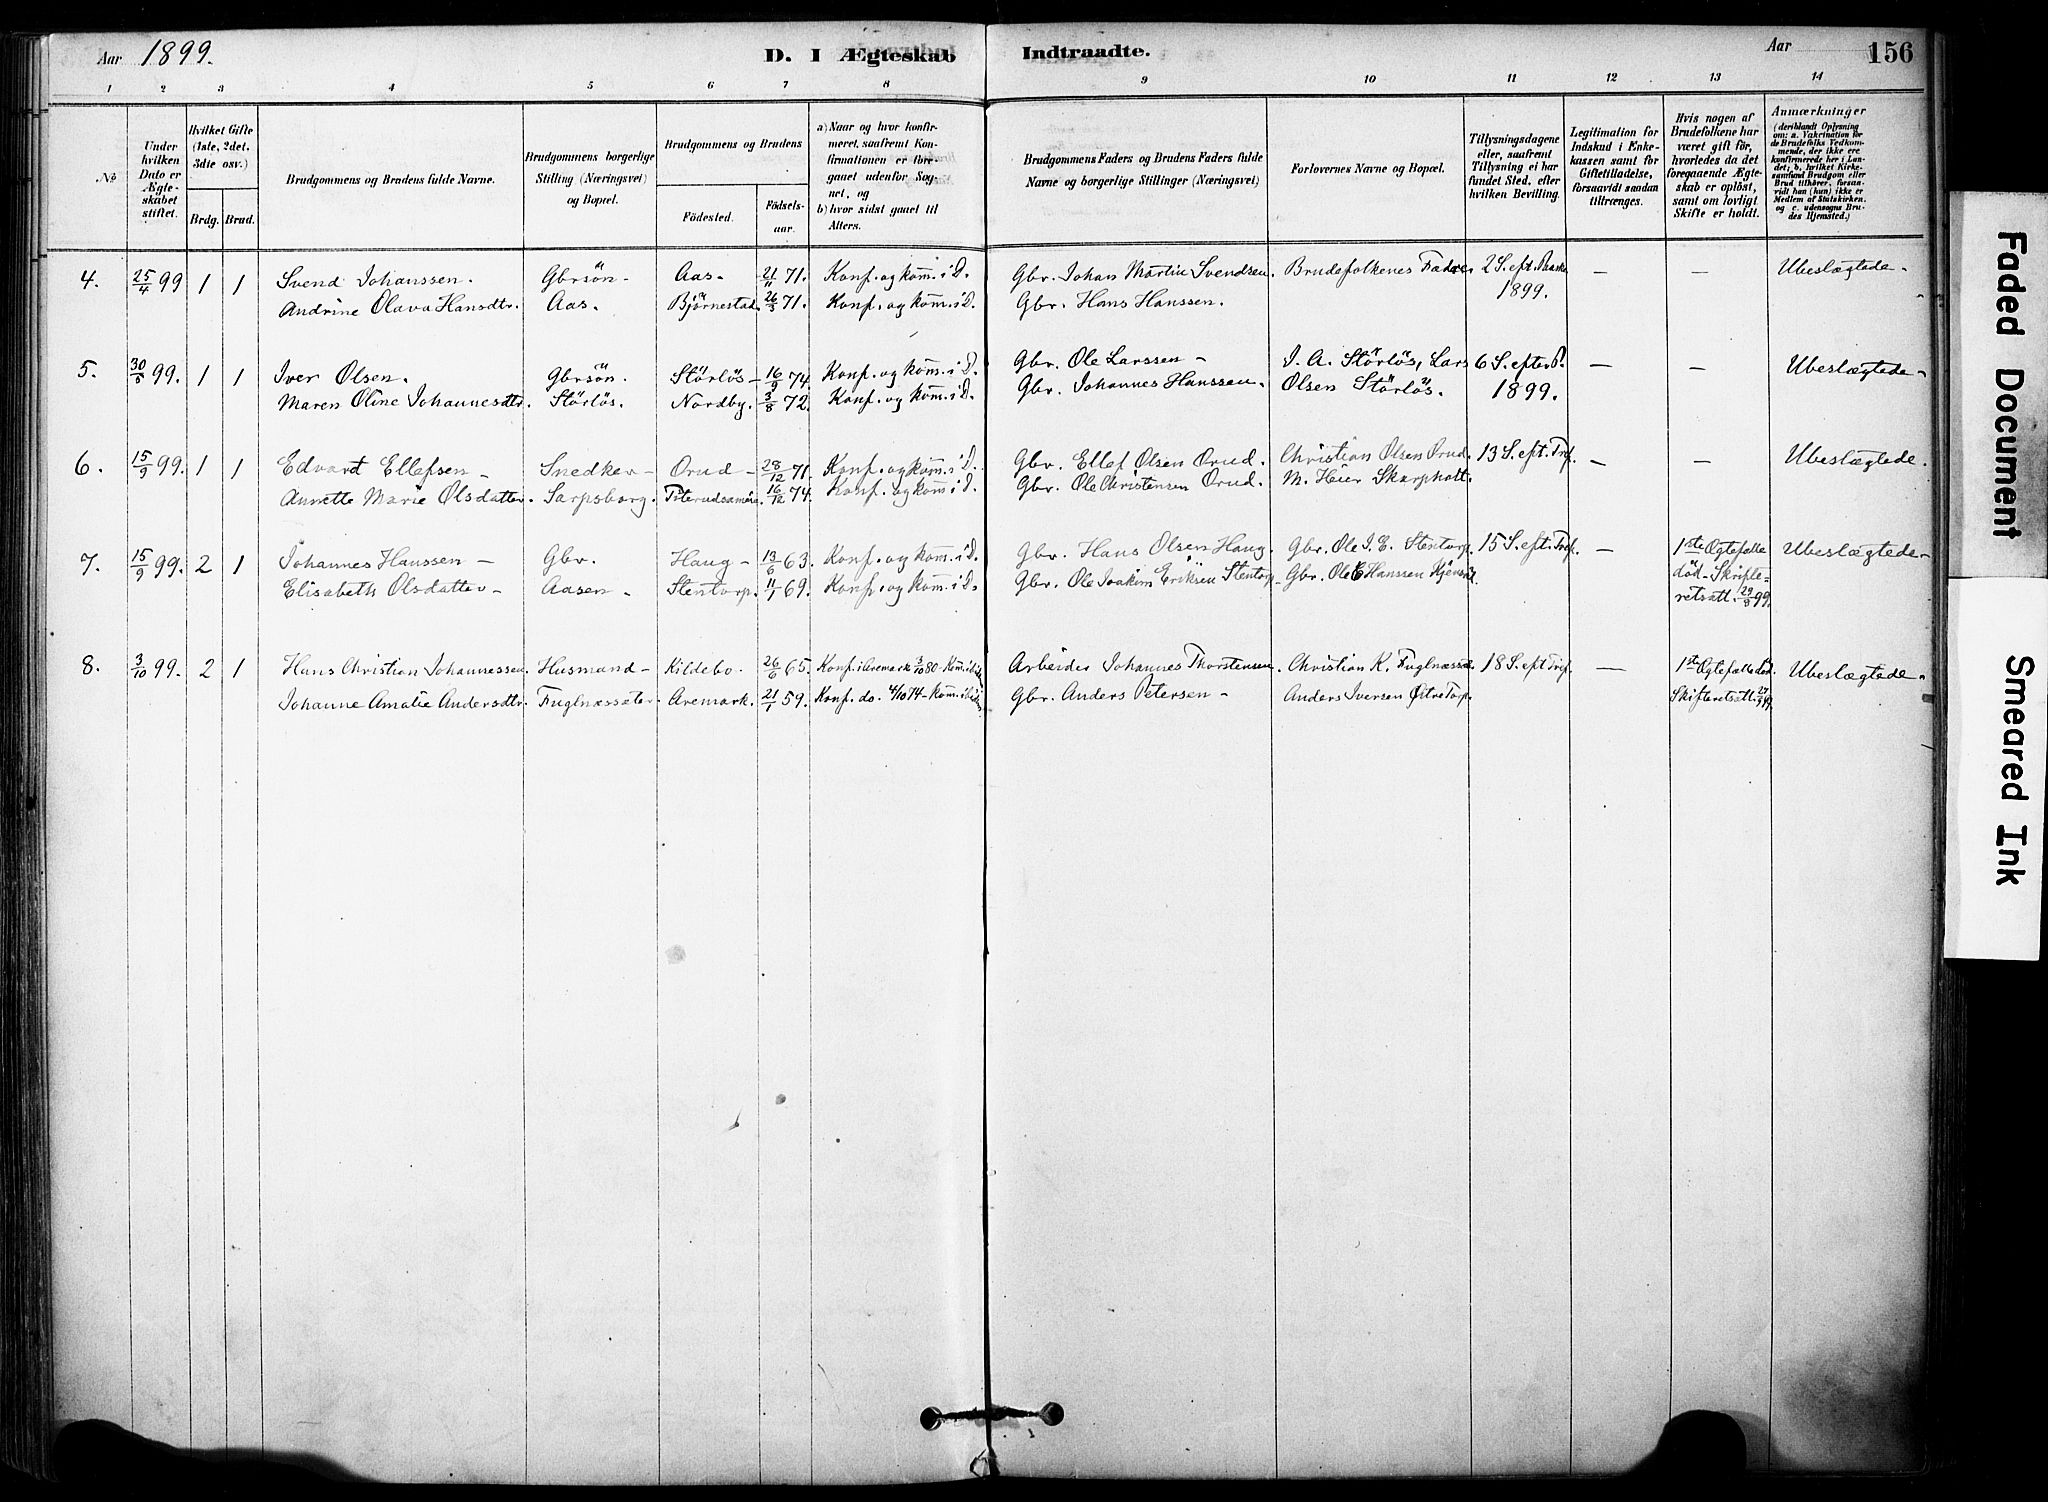 Aar 1899.
D. I Ægteskab Indtraadte.
Aar
156
1 2 3 4 5 6 7 8 9 10 11 12 13 14
No
Under hvilken Dato er Ægteskabet stiftet.
Hvilket Gifte (1ste, 2det, 3die osv.)
Brdg. Brud.
Brudgommens og Brudens fulde Navne.
Brudgommens borgerlige Stilling (Næringsvei) og Bopæl.
Brudgommens og Brudens
Fødested. Fødselsaar.
a) Naar og hvor konfirmeret, saafremt Konfirmationen er foregaaet udenfor Sognet, og
b) hvor sidst gaaet til Alters.
Brudgommens Faders og Brudens Faders fulde Navne og borgerlige Stillinger (Næringsvei)
Forlovernes Navne og Bopæl.
Tillysningsdagene eller, saafremt Tillysning ei har fundet Sted, efter hvilken Bevilling.
Legitimation for Indskud i Enkekassen samt for Giftetilladelse, forsaavidt saadan tiltrænges.
Hvis nogen af Brudefolkene har været gift før, hvorledes da det foregaaende Ægteskab er opløst, samt om lovligt Skifte er holdt.
Anmærkninger (deriblandt Oplysning om: a. Vakcination for de Brudefolks Vedkommende, der ikke ere konfirmerede her i Landet; b. hvilket Kirkesamfund Brudgom eller Brud tilhører, forsaavidt han (hun) ikke er Medlem af Statskirken, og c. udensogns Brudes Hjemsted.)
4. 25/4 99 1 1 Svend Johanssen. Gbrsön- Aas- 21/11 71. Konf. og kom. i D. Gbr. Johan Martin Svendsen. Brudefolkenes Fædre 2 S. eft. Paaske — — Ubeslægtede-
Andrine Olava Hansdtr. Aas. Björnestad 26/3 71. Konf. og kom. i D. Gbr. Hans Hanssen. 1899.
5. 30/5 99. 1 1 Iver Olsen. Gbrsön. Störlös- 16/9 74. Konf. og kom. i D. Gbr. Ole Larssen- I. A. Störlös, Lars 6 S. efter P. — — Ubeslægtede-
Maren Oline Johannesdtr. Störlös. Nordby. 3/8 72. Konf. og kom. i D. Gbr. Johannes Hanssen. Olsen Störlös. 1899.
6. 15/9 99. 1 1 Edvard Ellefsen- Snedker- Orud- 28/12 71. Konf. og kom. i D. Gbr. Ellef Olsen Orud. Christian Olsen Orud. 13 S. eft. Tref. — — Ubeslægtede.
Annette Marie Olsdatter. Sarpsborg. 16/12 74. Konf. og kom. i D. Gbr. Ole Christensen Orud. M. Heier Skarpholt.
7. 15/9 99. 2 1 Johannes Hanssen- Gbr. Haug- 13/6 63. Konf. og kom. i D. Gbr. Hans Olsen Haug. Gbr. Ole I. E. Stentorp. 15 S. eft. Tref. — 1ste Ægtefælle Ubeslægtede-
Elisabeth Olsdatter- Aasen- Stentorp. 11/1 69. Konf. og kom. i D. Gbr. Ole Joakim Eriksen Stentorp- Gbr. Ole E Hanssen död- Skifteretsatt. 29/8 99.
8. 3/10 99. 2 1 Hans Christian Johannessen Husmand- Kildebo. 26/6 65. Konf. i Aremark 3/10 80- Arbeider Johannes Thorstensen. Christian K. Fuglnæssæ. 18 S. eft Tref. — 1ste Ægtefælle död Ubeslægtede-
Johanne Amalie Andersdtr. Fuglnæssæter. Aremark. 21/1 59. Konf. do. 4/10 74- Gbr. Anders Petersen- Anders Iversen Østre Torp. Skifteretsatt.
Faded Document
Smeared Ink